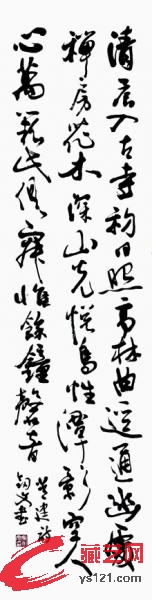 清晨入古寺初日照高林曲徑通幽處
禪房花木深山光悅鳥性潭影空人
心萬籟此俱寂惟餘鐘磬音
常建詩
ys121.com